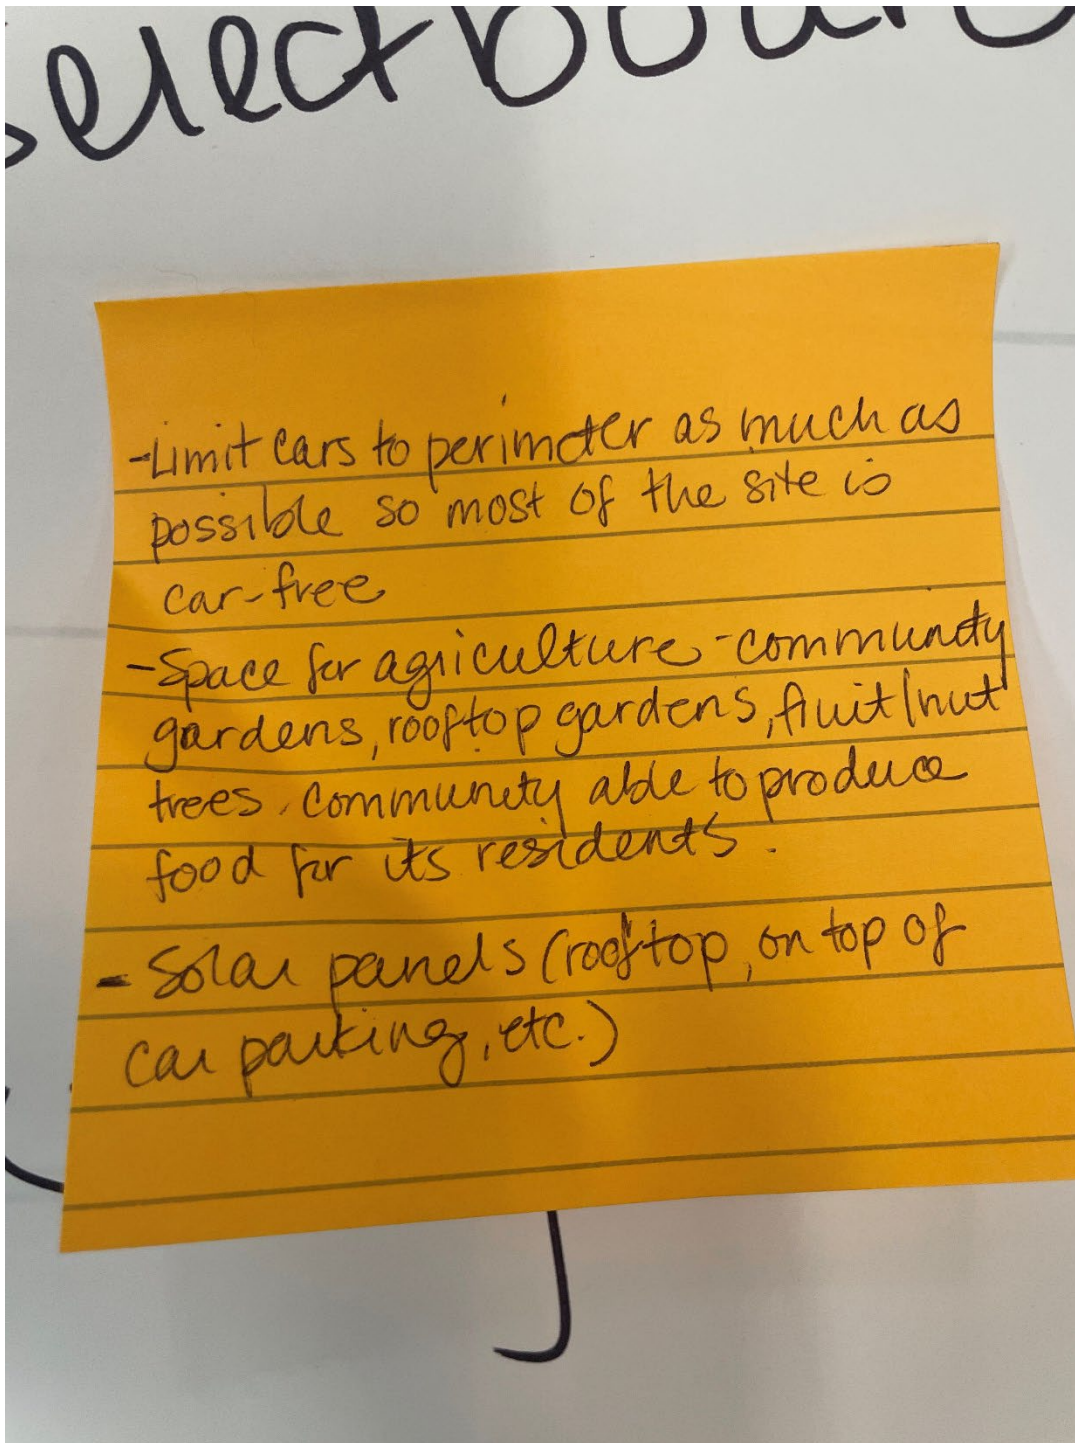 Selectboar
-Limit cars to perimeter as much as
possible so most of the site is
car-free
-Space for agriculture - community
gardens, rooftop gardens, fruit/nut
trees. Community able to produce
food for its residents.
- Solar panels (rooftop, on top of
car parking, etc.)